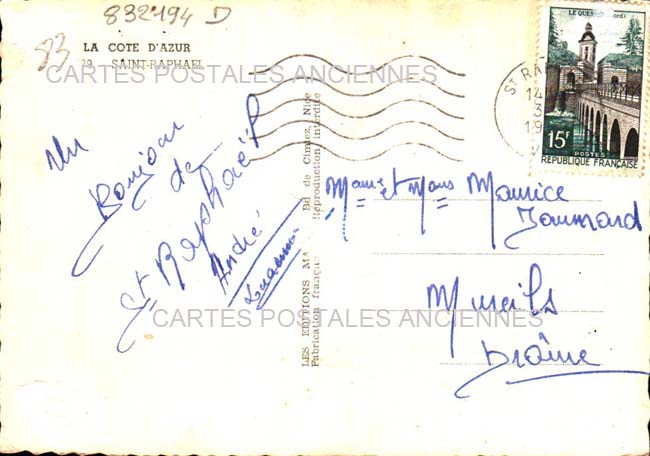 832494 D
83
LA COTE D'AZUR
29. SAINT-RAPHAEL
CARTES POSTALES ANCIENNES
Un
Bonjour
de
St Raphaël
André
LES EDITIONS MA
Bd de Cimiez, Nice
Fabrication français
Reproduction interdite
LE QUESNOY (Nord)
15F
POSTES
REPUBLIQUE FRANÇAISE
ST RA
14
3
19
et Mons Maurice
Mureils
Drôme
CARTES POSTALES ANCIENNES